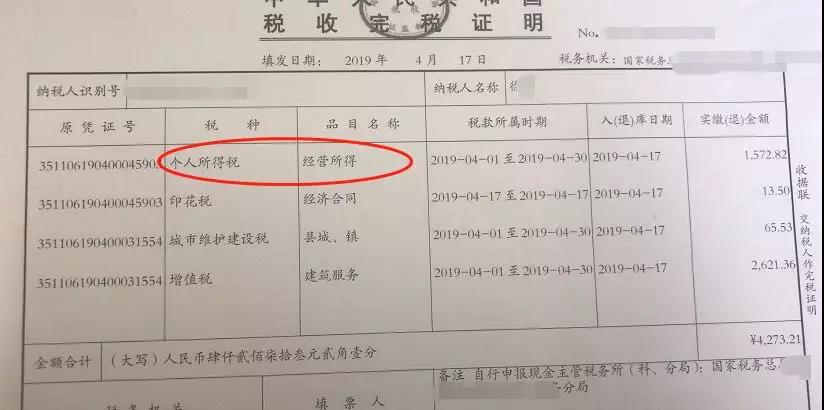 税收完税证明
No.
填发日期: 2019 年 4 月 17 日 税务机关: 国家税务总
纳税人识别号 纳税人名称
原凭证号 税 种 品目名称 税款所属时期 入(退)库日期 实缴(退)金额
35110619040004590 个人所得税 经营所得 2019-04-01 至 2019-04-30 2019-04-17 1,572.82
351106190400045903 印花税 经济合同 2019-04-17 至 2019-04-17 2019-04-17 13.50
351106190400031554 城市维护建设税 县城、镇 2019-04-01 至 2019-04-30 2019-04-17 65.53
351106190400031554 增值税 建筑服务 2019-04-01 至 2019-04-30 2019-04-17 2,621.36
¥4,273.21
金额合计 (大写)人民币肆仟贰佰柒拾叁元贰角壹分
收据联 交纳税人作完税证明
税务机关 填票人 备注 自行申报现金主管税务所(科、分局): 国家税务总
务分局